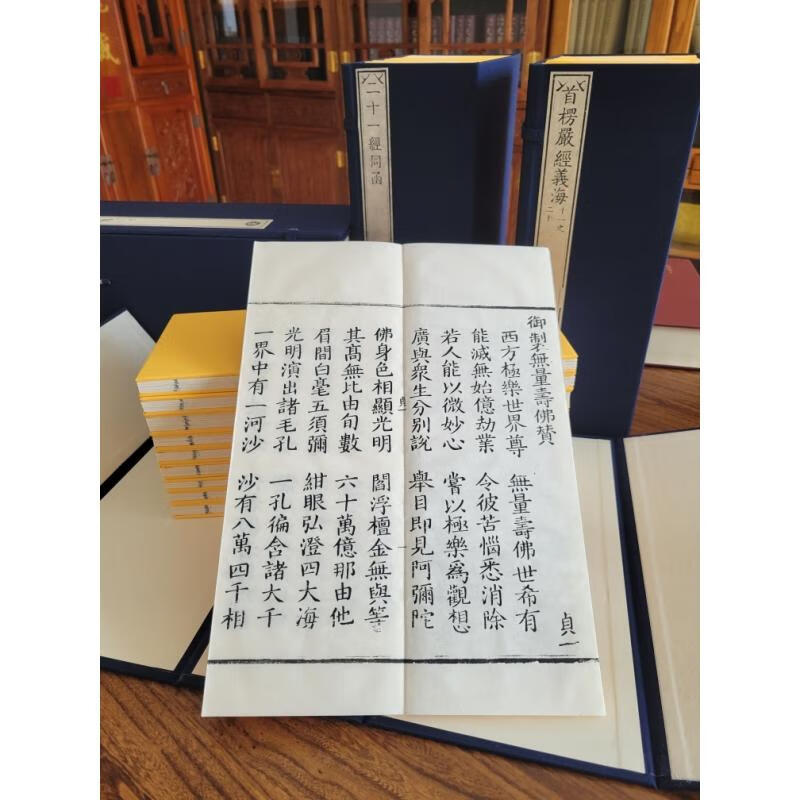 二十一經同函
首楞嚴經義海
十一之二十
御製無量壽佛贊
西方極樂世界尊 無量壽佛世希有
能滅無始億劫業 令彼苦惱悉消除
若人能以微妙心 嘗以極樂爲觀想
廣與衆生分別說 舉目即見阿彌陀
佛身色相顯光明 閻浮檀金無與等
其髙無比由旬數 六十萬億那由他
眉間白毫五須彌 紺眼弘澄四大海
光明演出諸毛孔 一孔徧含諸大千
一界中有一河沙 沙有八萬四千相
貞一
藏